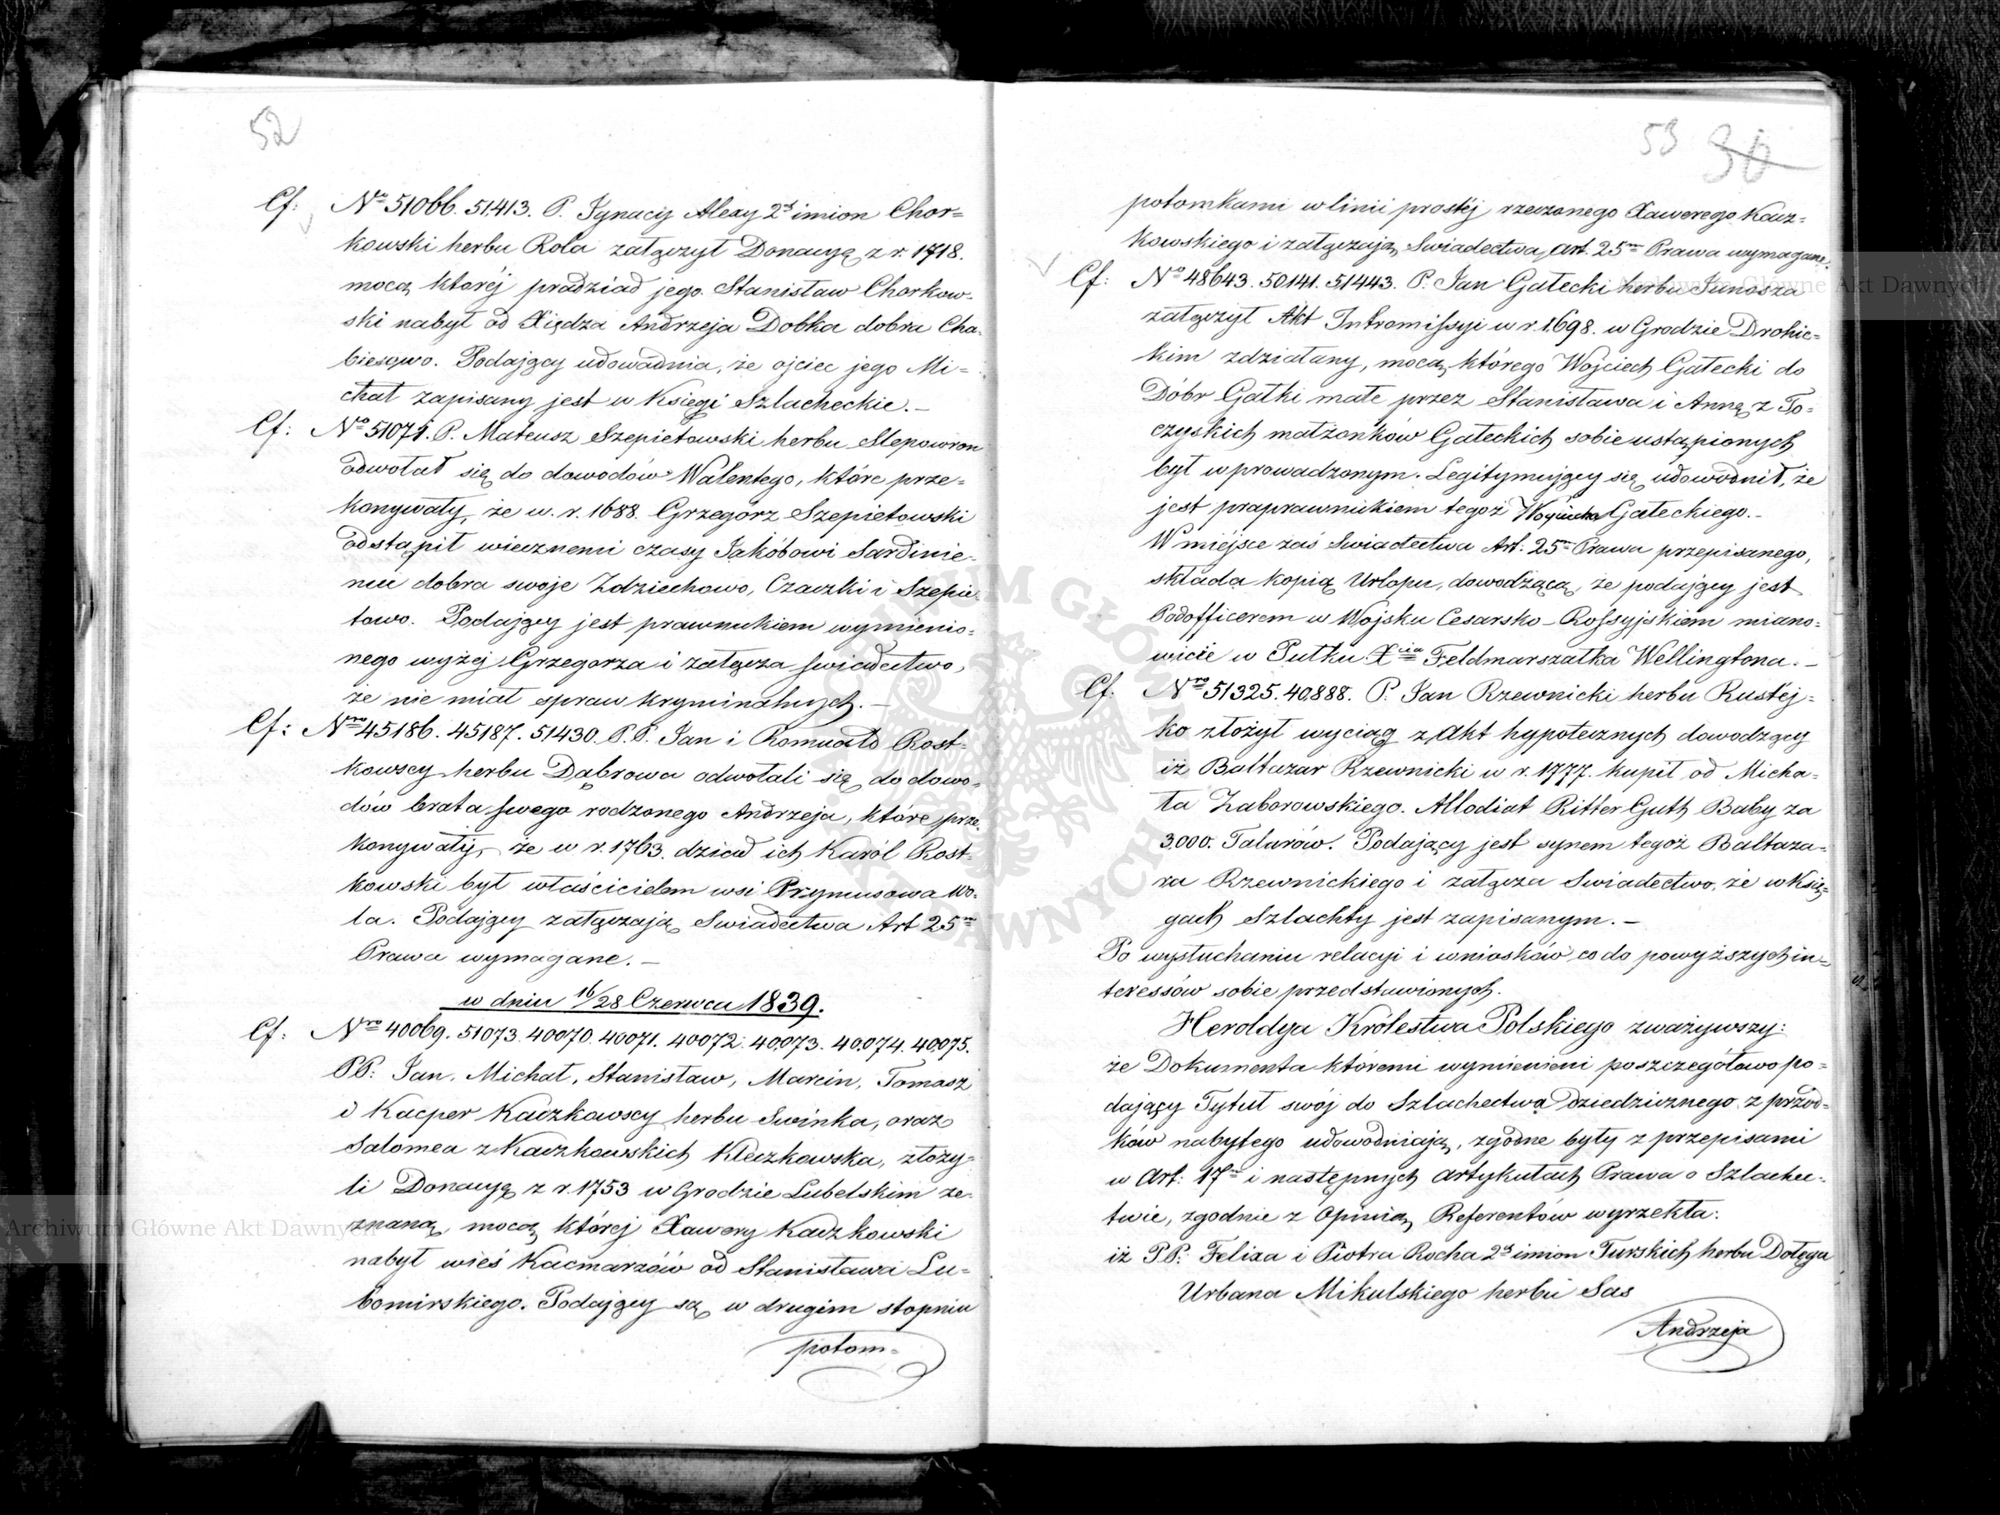 52
Cf: Nro 51066. 51413. P. Ignacy Alexy 2ch imion Chor=
kowski herbu Rola załączył Donacyą z r. 1718.
mocą której pradziad jego Stanisław Chorkow-
ski nabył od Xiędza Andrzeja Dobka dobra Cho-
bieszwo. Podający udowadnia, że ojciec jego Mi=
chał zapisany jest w Księgi Szlacheckie.–
Cf: No 51071. P. Mateusz Szepietowski herbu Slepowron
odwołał się do dowodów Walentego, które prze=
konywały, że w r. 1688. Grzegorz Szepietowski
odstąpił wiecznemi czasy Jakóbowi Sardinie-
mu dobra swoje Zdziechowo, Czaczki i Szepie-
towo. Podający jest prawnukiem wymienio=
nego wyżej Grzegorza i załącza swiadectwo,
że nie miał spraw kryminalnych.–
Cf: Nro 45186. 45187. 51430. P.P. Jan i Romuald Rost=
kowscy herbu Dąbrowa odwołali się do dowo-
dów brata swego rodzonego Andrzeja, które prze-
konywały, że w r. 1763. dziad ich Karól Rost-
kowski był właścicielem wsi Prymusowa Wo-
la. Podający załączają Swiadectwa Art 25m
Prawa wymagane.–
w dniu 16/28 Czerwca 1839.
Cf: Nro 40069. 51073. 40070. 40071. 40072. 40073. 40074. 40075.
PP: Jan, Michał, Stanisław, Marcin, Tomasz
i Kacper Kaczkowscy herbu Swinka, oraz
Salomea z Kaczkowskich Kleczkowska, złoży=
li Donacyą z r. 1753 w Grodzie Lubelskim ze-
znaną, mocą której Xawery Kaczkowski
nabył wieś Kacmarzów od Stanisława Lu=
bomirskiego. Podający są w drugim stopniu
potom=
53 30
potomkami w linii prostéj rzeczonego Xawerego Kacz-
kowskiego i załączają Swiadectwa, art. 25m Prawa wymagane.
Cf: No 48643. 50141. 51443. P. Jan Gałecki herbu Junosza
załączył Akt Intromissyi w r. 1698. w Grodzie Drohic=
kim zdziałany, mocą którego Wojciech Gałecki do
Dóbr Gałki małe przez Stanisława i Annę z To=
czyskich małżonków Gałeckich sobie ustąpionych
był wprowadzonym. Legitymujący się udowodnił, że
jest praprawnukiem tegoż Wojciecha Gałeckiego.–
W miejsce zaś Swiadectwa Art: 25m Prawa przepisanego,
składa kopią Urlopu, dowodzącą, że podający jest
Podofficerem w Wojsku Cesarsko-Rossyjskiem miano-
wicie w Pułku Xcia Feldmarszałka Wellingtona.–
Cf: Nro 51325. 40888. P. Jan Rzewnicki herbu Rustej-
ko złożył wyciąg z Akt hypotecznych dowodzący
iż Baltazar Rzewnicki w r. 1777. kupił od Micha-
ła Zaborowskiego. Allodiat Ritter Guth Baby za
3,000. Talarów. Podający jest synem tegoż Baltaza-
ra Rzewnickiego i załącza Swiadectwo, że w Księ-
gach Szlachty jest zapisanym.–
Po wysłuchaniu relacyi i wniosków co do powyższych in-
teressów sobie przedstawionych.
Heroldya Królestwa Polskiego zważywszy:
że Dokumenta któremi wymienieni poszczegółowo po=
dający Tytuł swój do Szlachectwa dziedzicznego z przod=
ków nabytego udowodniają, zgodne były z przepisami
w Art: 17m i następnych artykułach Prawa o Szlachec-
twie, zgodnie z Opinią Referentów wyrzekła:
iż PP: Felixa i Piotra Rocha 2ch imion Turskich herbu Dołęga
Urbana Mikulskiego herbu Sas
Andrzeja
ARCHIWUM GŁÓWNE AKT DAWNYCH
Archiwum Główne Akt Dawnych
Archiwum Główne Akt Dawnych